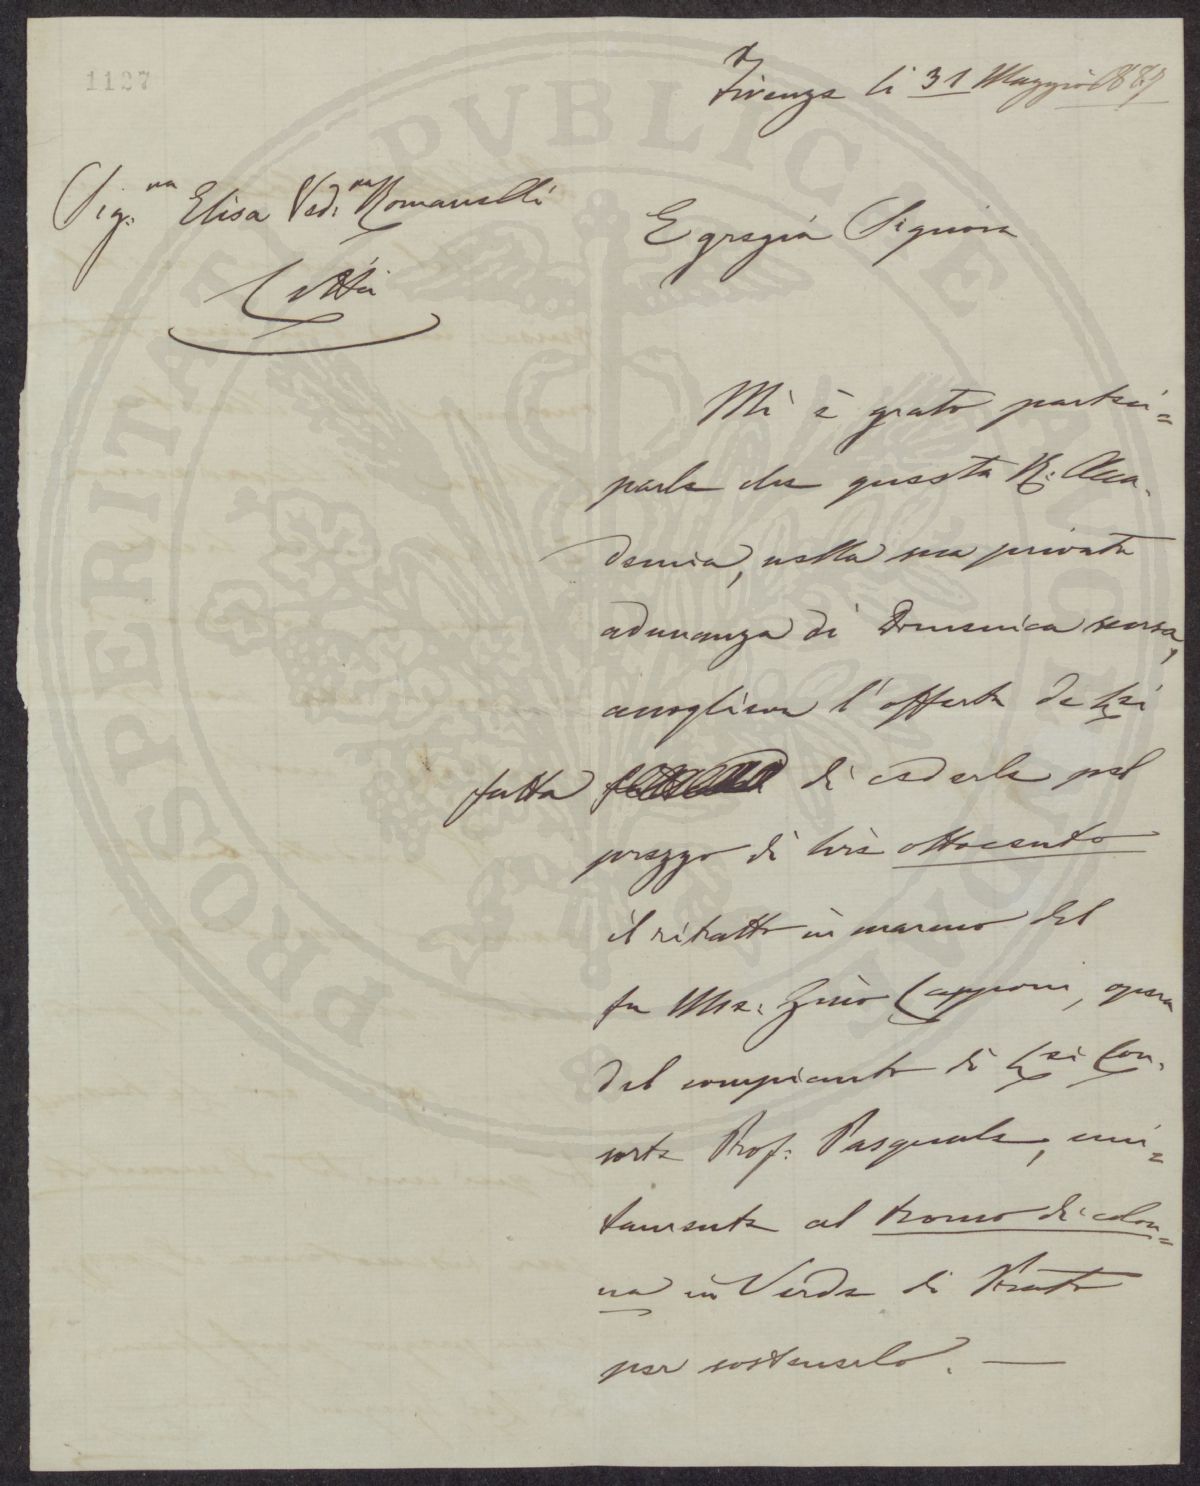 1127
Firenze li 31 Maggio 1887
Sig:ra Elisa Ved:va Romanelli
Città
Egregia Signora
Mi è grato parteci=
parle che questa R: Acca-
demia, nella sua privata
adunanza di Domenica scorsa,
accoglieva l'offerta da Lei
fatta di cederle pel
prezzo di Lire ottocento
il ritratto in marmo del
fu Mse: Gino Capponi, opera
del compianto di Lei Con-
sorte Prof: Pasquale, uni=
tamente al tronco di colon=
na in Verde di Prato
per sostenerlo. —
PROSPERITATI PVBLICAE AVGENDAE